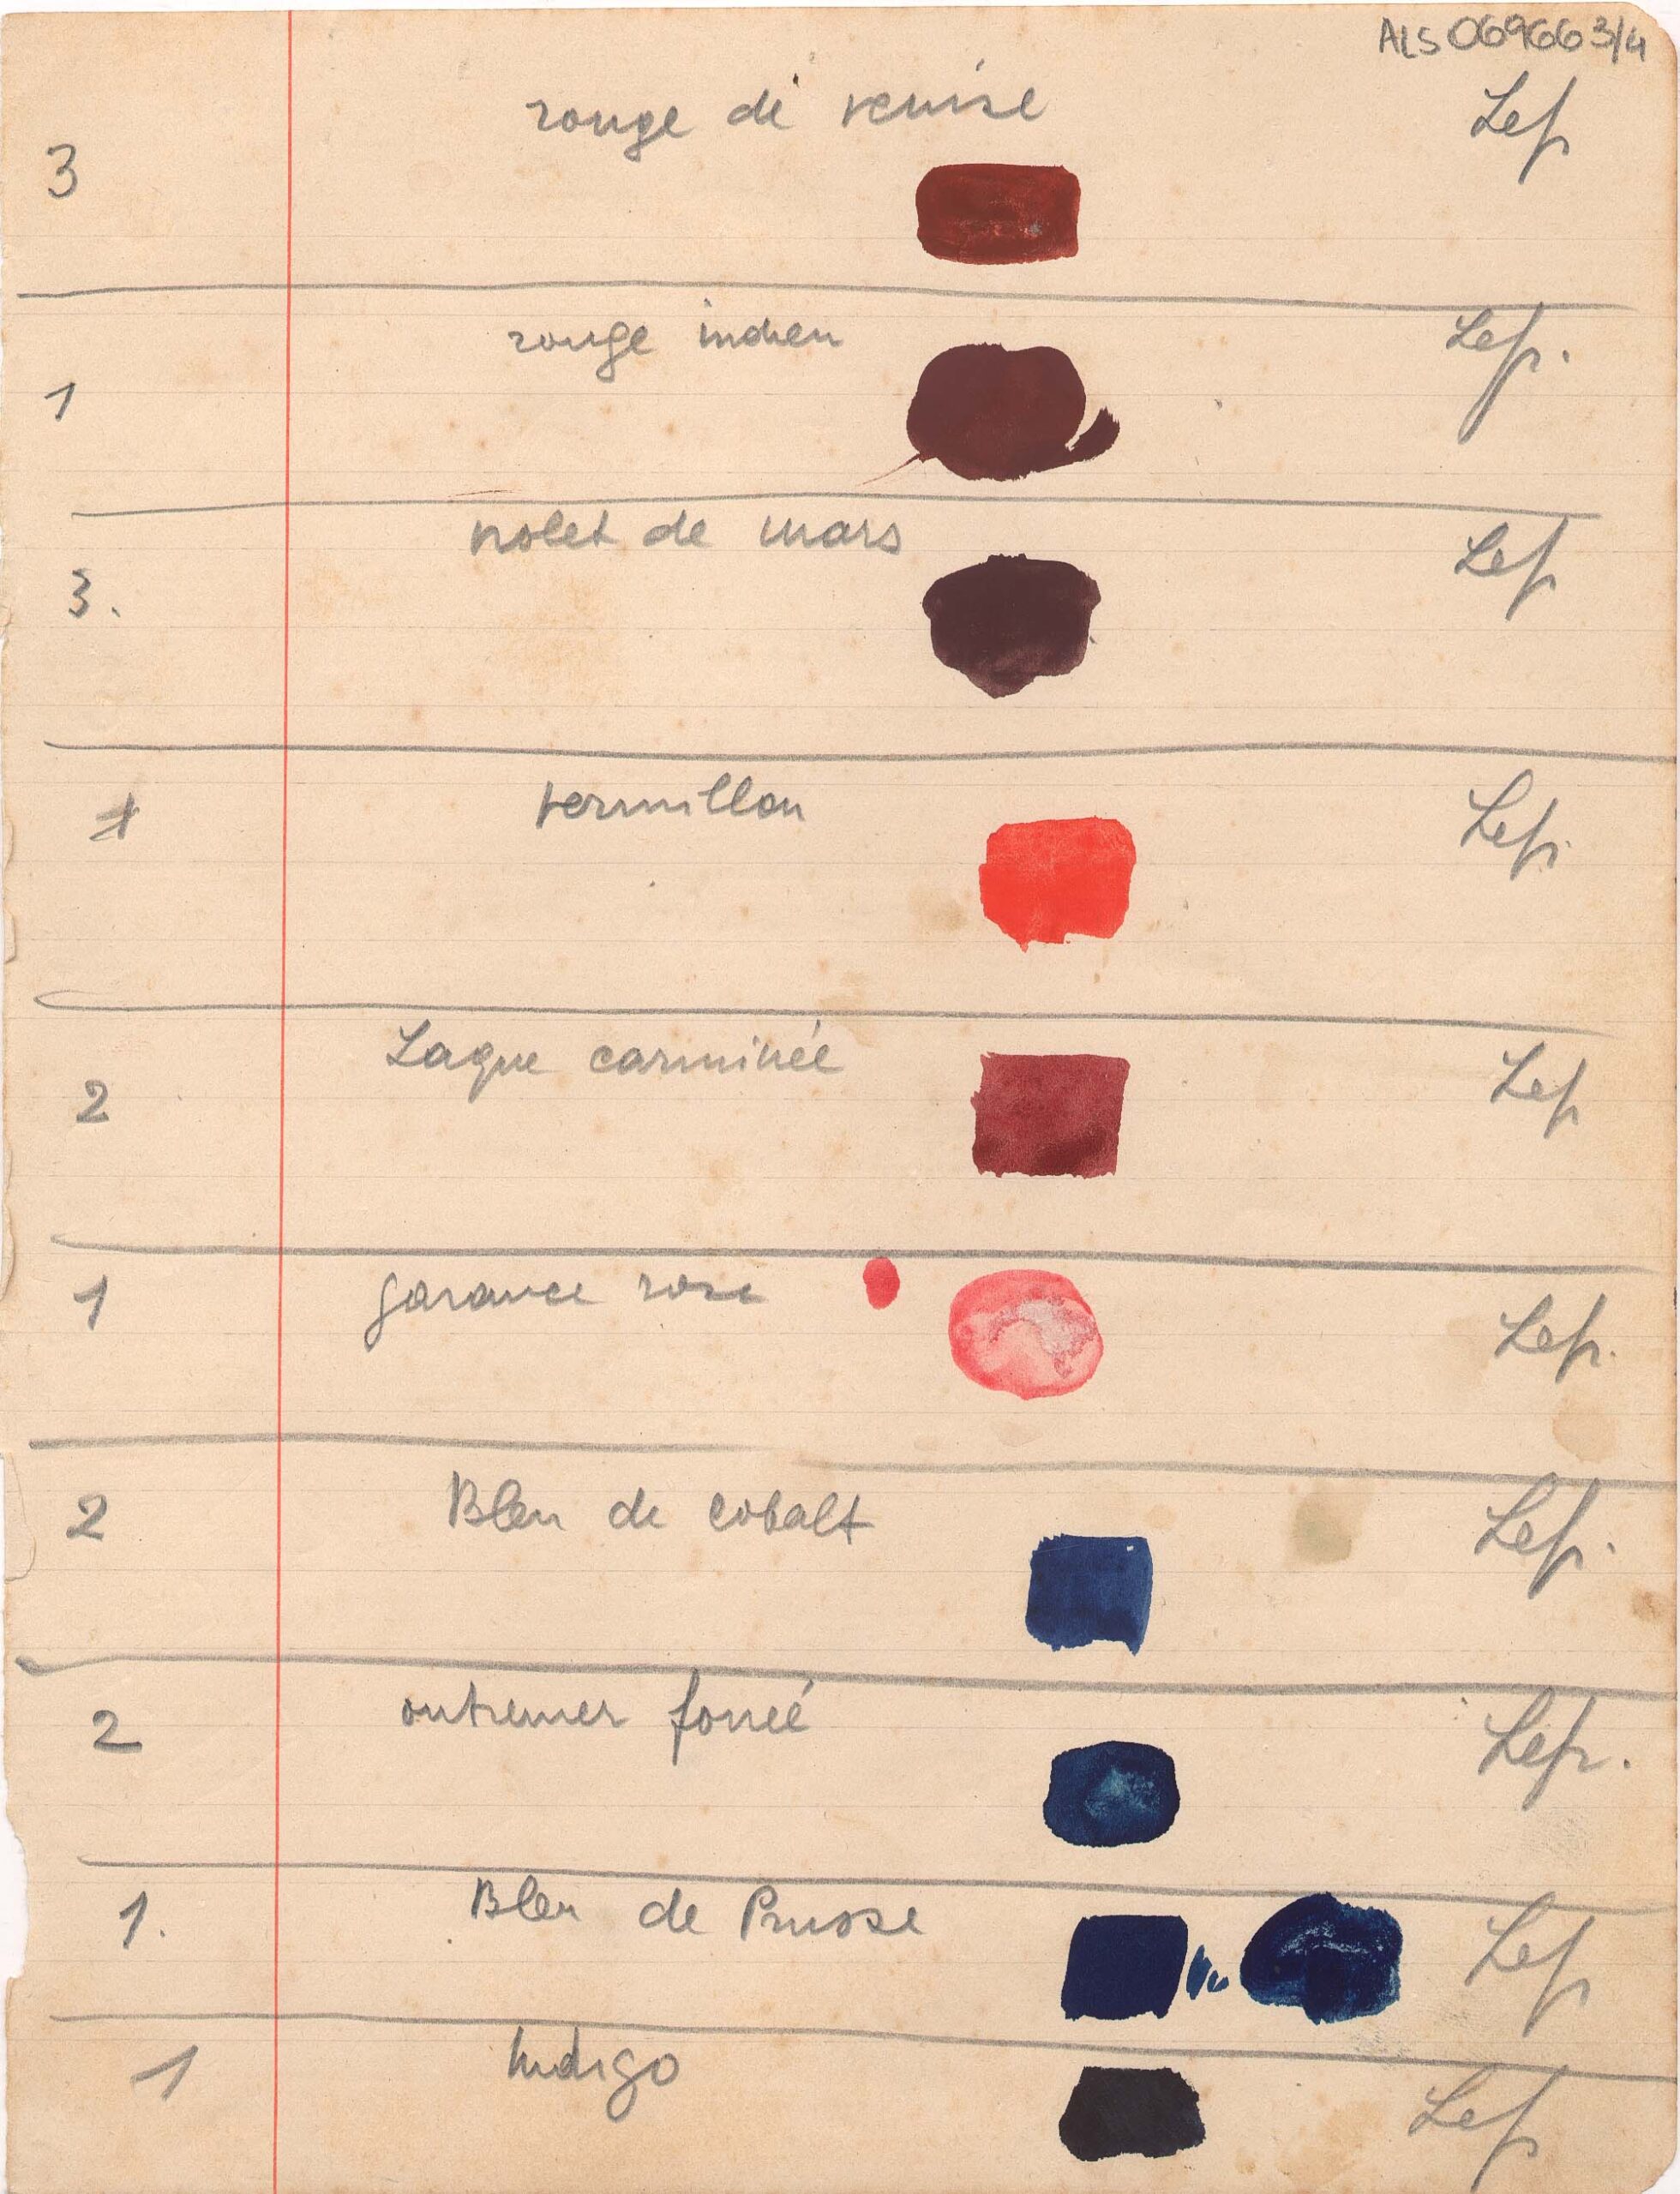 ALS 069663/4
rouge de venise Lef
3
rouge indien Lef.
1
violet de mars Lef
3.
vermillon Lef.
1
Laque carminée Lef
2
garance rose Lef.
1
Bleu de cobalt Lef.
2
outremer foncé Lefr.
2
Bleu de Prusse Lef
1.
Indigo Lef
1